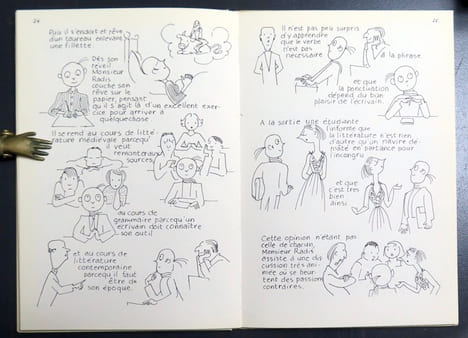 24
Puis il s'endort et rêve
d'un taureau enlevant
une fillette.
Dès son
reveil
Monsieur
Radis
couche son
rêve sur le
papier, pensant
qu'il s'agit là d'un excellent exer-
cice pour arriver à
quelquechose
Il se rend au cours de litté-
rature médiévale parcequ'
il veut
remonter aux
sources,
au cours de
grammaire parcequ'un
écrivain doit connaître
son outil
et au cours de
littérature
contemporaine
parcequ'il faut
être de
son époque.
25
Il n'est pas peu surpris
d'y apprendre
que le verbe
n'est pas
nécessaire
à la phrase
et que
la ponctuation
dépend du bon
plaisir de l'écrivain.
A la sortie une étudiante
l'informe que
la littérature n'est rien
d'autre qu'un navire de
mate en partance pour
l'incongru
et que
c'est très
bien
ainsi
Cette opinion n'étant pas
celle de chacun,
Monsieur Radis
assiste à une dis
cussion très ani-
mée où se heur-
tent des passions
contraires.